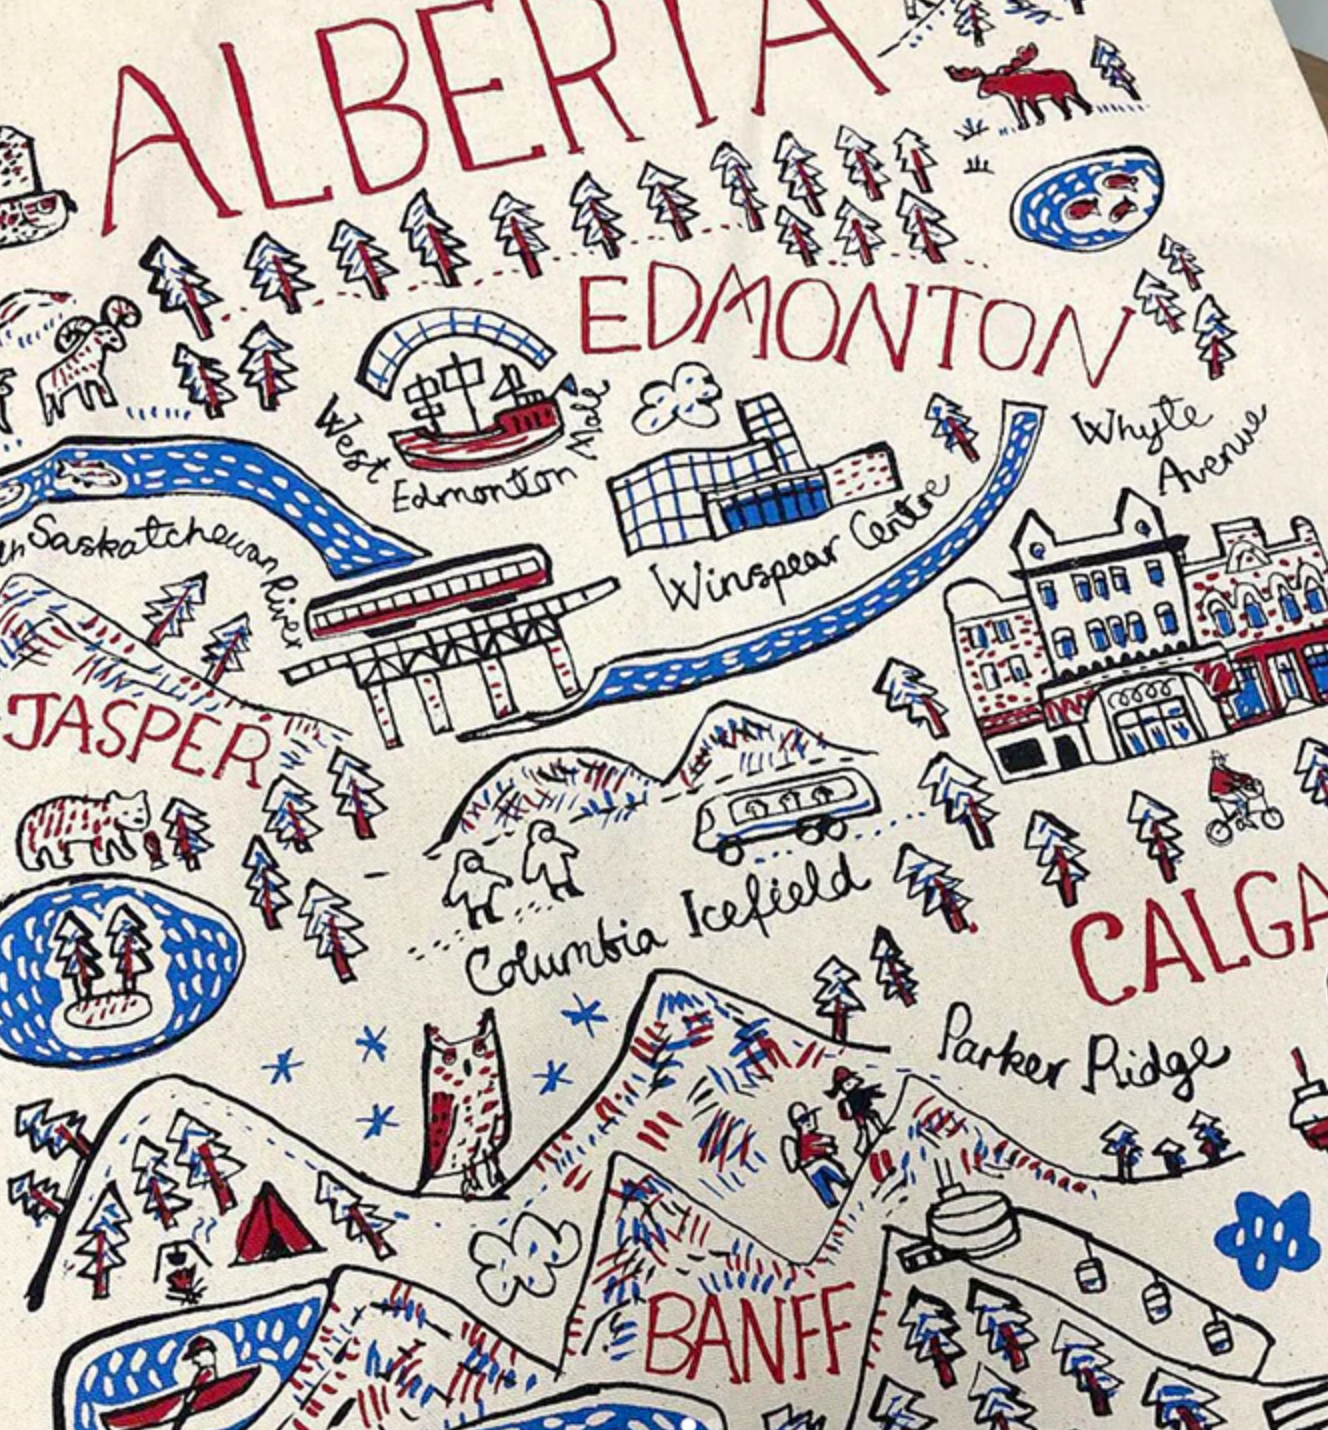 ALBERTA
EDMONTON
West
Edmonton
Male
Winspear Centre
Whyte
Avenue
Saskatchewan
River
JASPER
Columbia Icefield
CALGA
Parker Ridge
BANFF